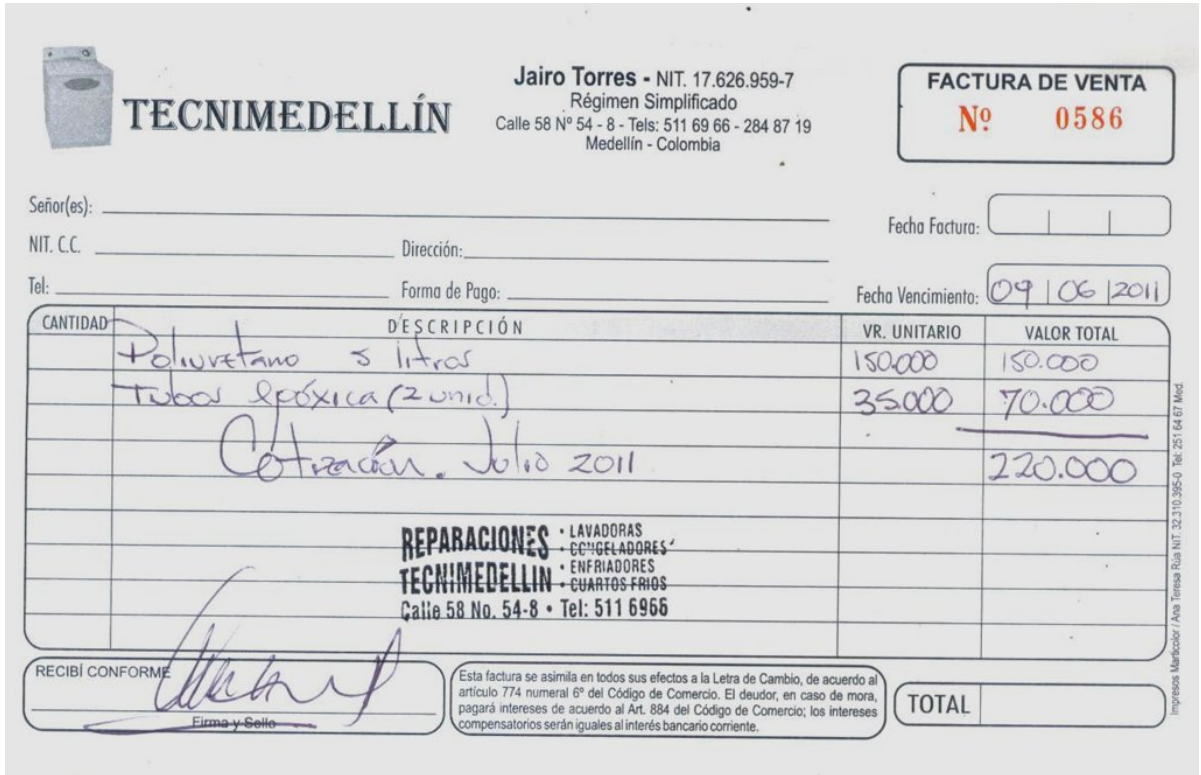 TECNIMEDELLÍN
Jairo Torres - NIT. 17.626.959-7
Régimen Simplificado
Calle 58 Nº 54 - 8 - Tels: 511 69 66 - 284 87 19
Medellín - Colombia
FACTURA DE VENTA
Nº 0586
Señor(es):
Fecha Factura:
NIT. C.C. Dirección:
Tel: Forma de Pago:
Fecha Vencimiento: 09 06 2011
CANTIDAD DESCRIPCIÓN VR. UNITARIO VALOR TOTAL
Poliuretano 5 litros 150.000 150.000
Tubos epóxica (2 unid.) 35.000 70.000
Cotización. Julio 2011 220.000
REPARACIONES • LAVADORAS
• CONGELADORES
• ENFRIADORES
TECNIMEDELLIN • CUARTOS FRIOS
Calle 58 No. 54-8 • Tel: 511 6966
RECIBÍ CONFORME
Firma y Sello
Esta factura se asimila en todos sus efectos a la Letra de Cambio, de acuerdo al
artículo 774 numeral 6º del Código de Comercio. El deudor, en caso de mora,
pagará intereses de acuerdo al Art. 884 del Código de Comercio; los intereses
compensatorios serán iguales al interés bancario corriente.
TOTAL
Impresos Marticolor / Ana Teresa Rúa NIT. 32.310.395-0 Tel: 251 64 67 Med.